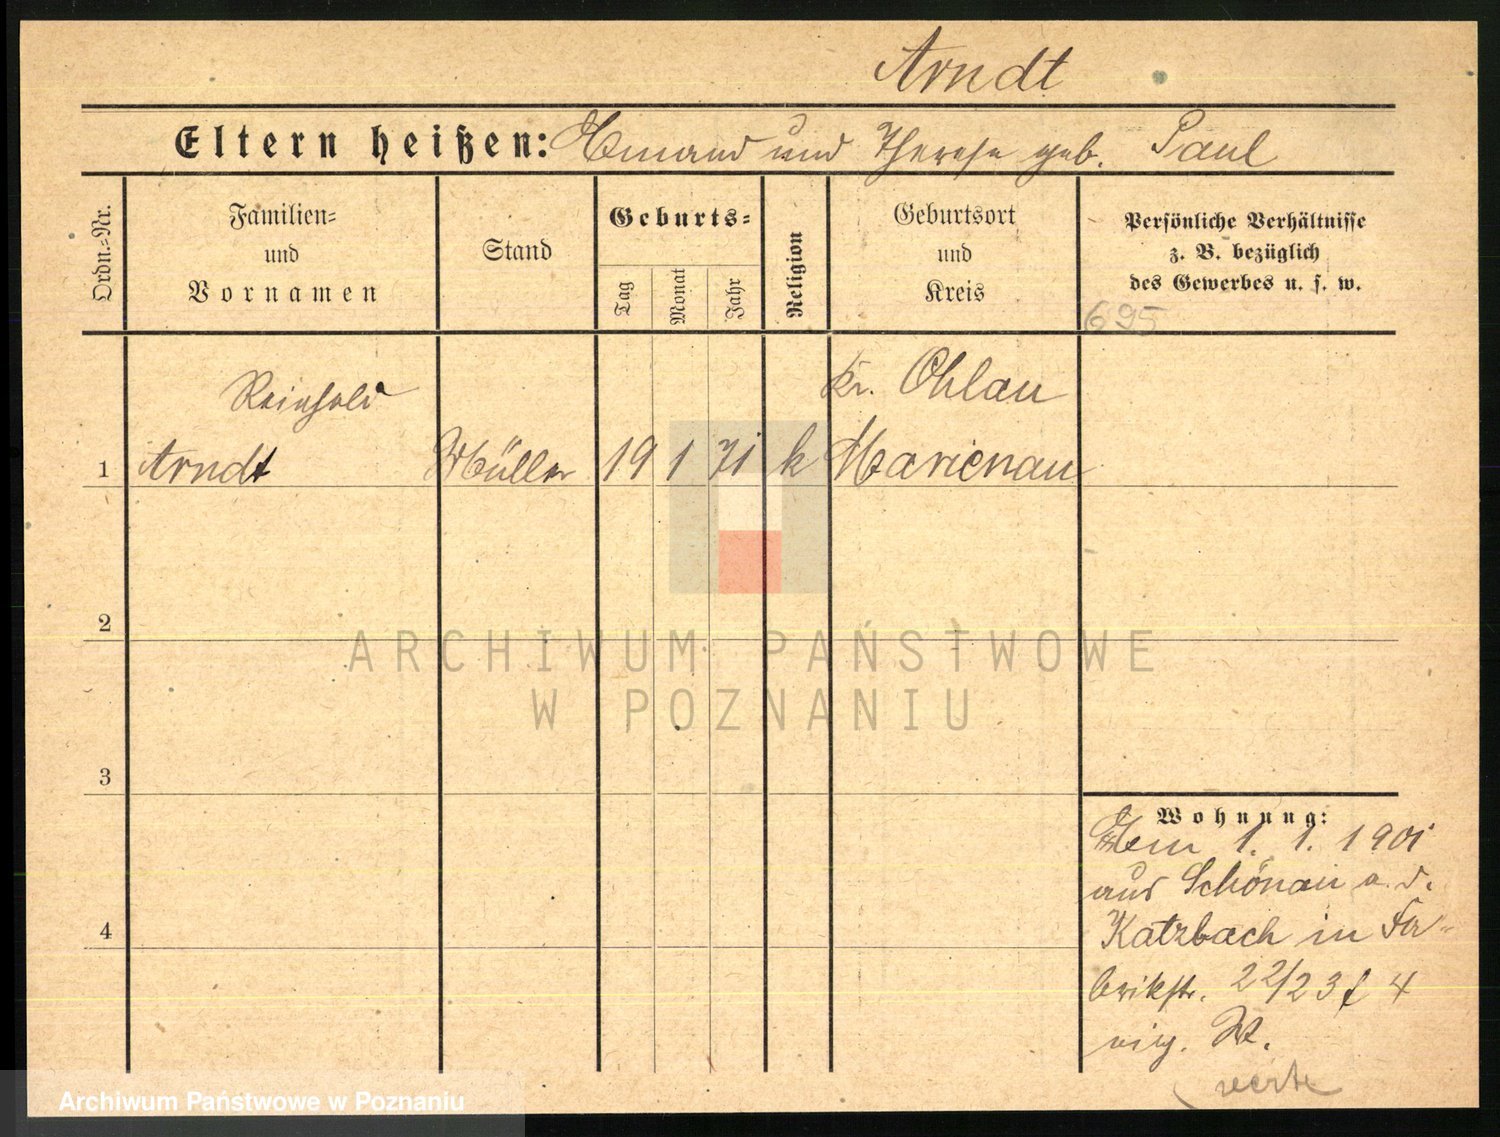 Arndt
Eltern heißen: und Therese geb. Paul
Ordn.-Nr.
Familien-
und
Vornamen
Stand
Geburts-
Tag
Monat
Jahr
Religion
Geburtsort
und
Kreis
Persönliche Verhältnisse
z. B. bezüglich
des Gewerbes u. s. w.
695
Reinhold
Kr. Ohlau
1 Arndt Müller 19 1 71 k Marienau
2
3
4
Wohnung:
1. 1. 1901
aus Schönau a. d.
Katzbach in Fa-
brikstr. 22/23 4
eig. W.
verte
ARCHIWUM PAŃSTWOWE
W POZNANIU
Archiwum Państwowe w Poznaniu